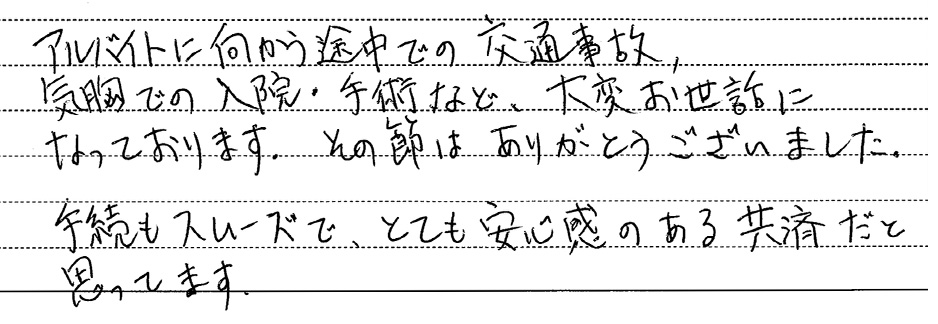 アルバイトに向かう途中での交通事故,
気胸での入院・手術など、大変お世話に
なっております. その節はありがとうございました.
手続もスムーズで、とても安心感のある共済だと
思ってます.